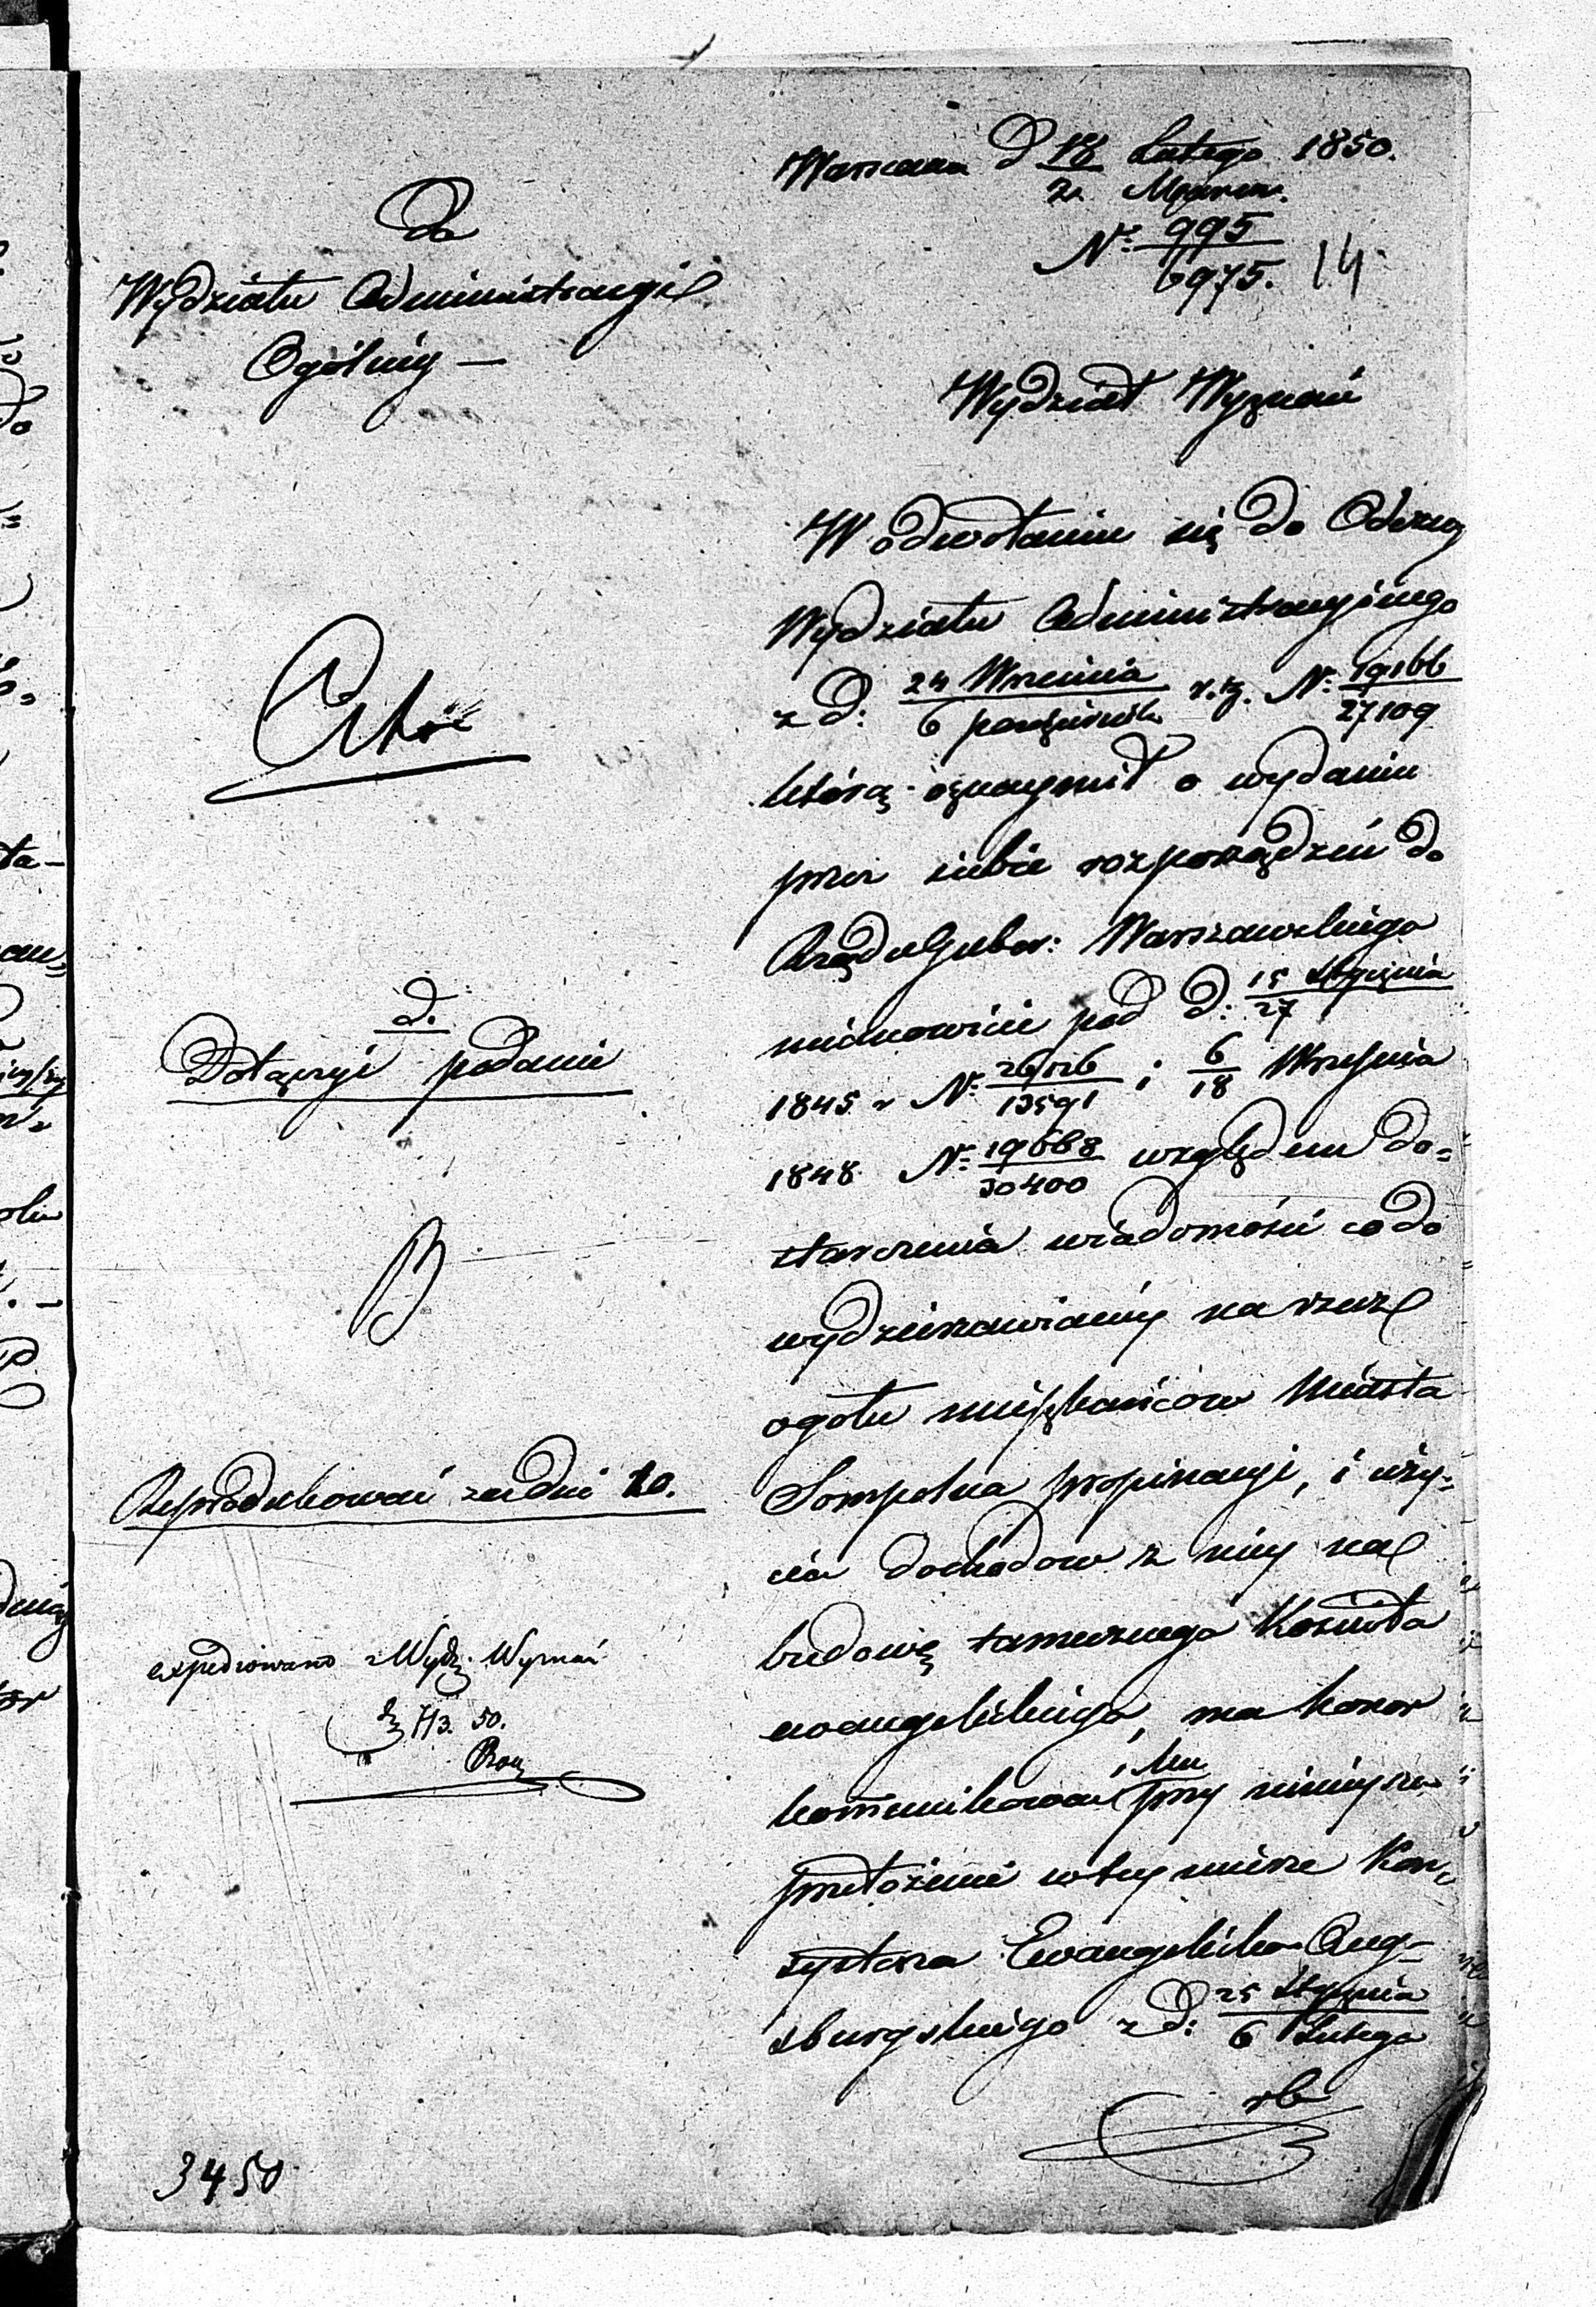 Warszawa d 18 Lutego 1850.
2 Marca.
Nº 995
6975. 14
Do
Wydziału Administracyi
Ogólnéy —
Wydział Wyznań
W odwołaniu się do Odezwy
Wydziału Administracyjnego
z d: 24 Września r. z. Nº 19166
6 października 27109
którą oznaymił o wydaniu
przez siebie rozporządzeń do
Rządu Guber: Warszawskiego
mianowicie pod d: 15 Stycznia
27
1845 r Nº i 6 Września
13591 18
1848 Nº 19668 względem do=
30400
starczenia wiadomości co do
wydzierżawianéy na rzecz
ogółu mieszkańców Miasta
Sompolna propinacyi, i uży=
cia dochodów z niéy na
budowę tamecznego Kościoła
ewangelickiego, ma honor
i Mu
kommunikować przy ninieyszem
przełożenie w téy mierze Kon=
systorza Ewangelicko Aug=
sburgskiego z d: 25 Stycznia
6 Lutego
rb
Cito
d.
Dołączyć podanie
Reprodukować za dni 20.
expediowano z Wydz. Wyznań
50.
3450